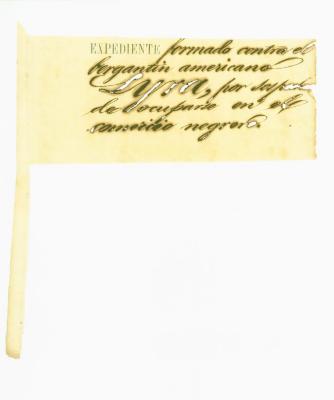 EXPEDIENTE formado contra el
bergantin americano
Lyra, por sospe
de ocuparse en el
comercio negrero.